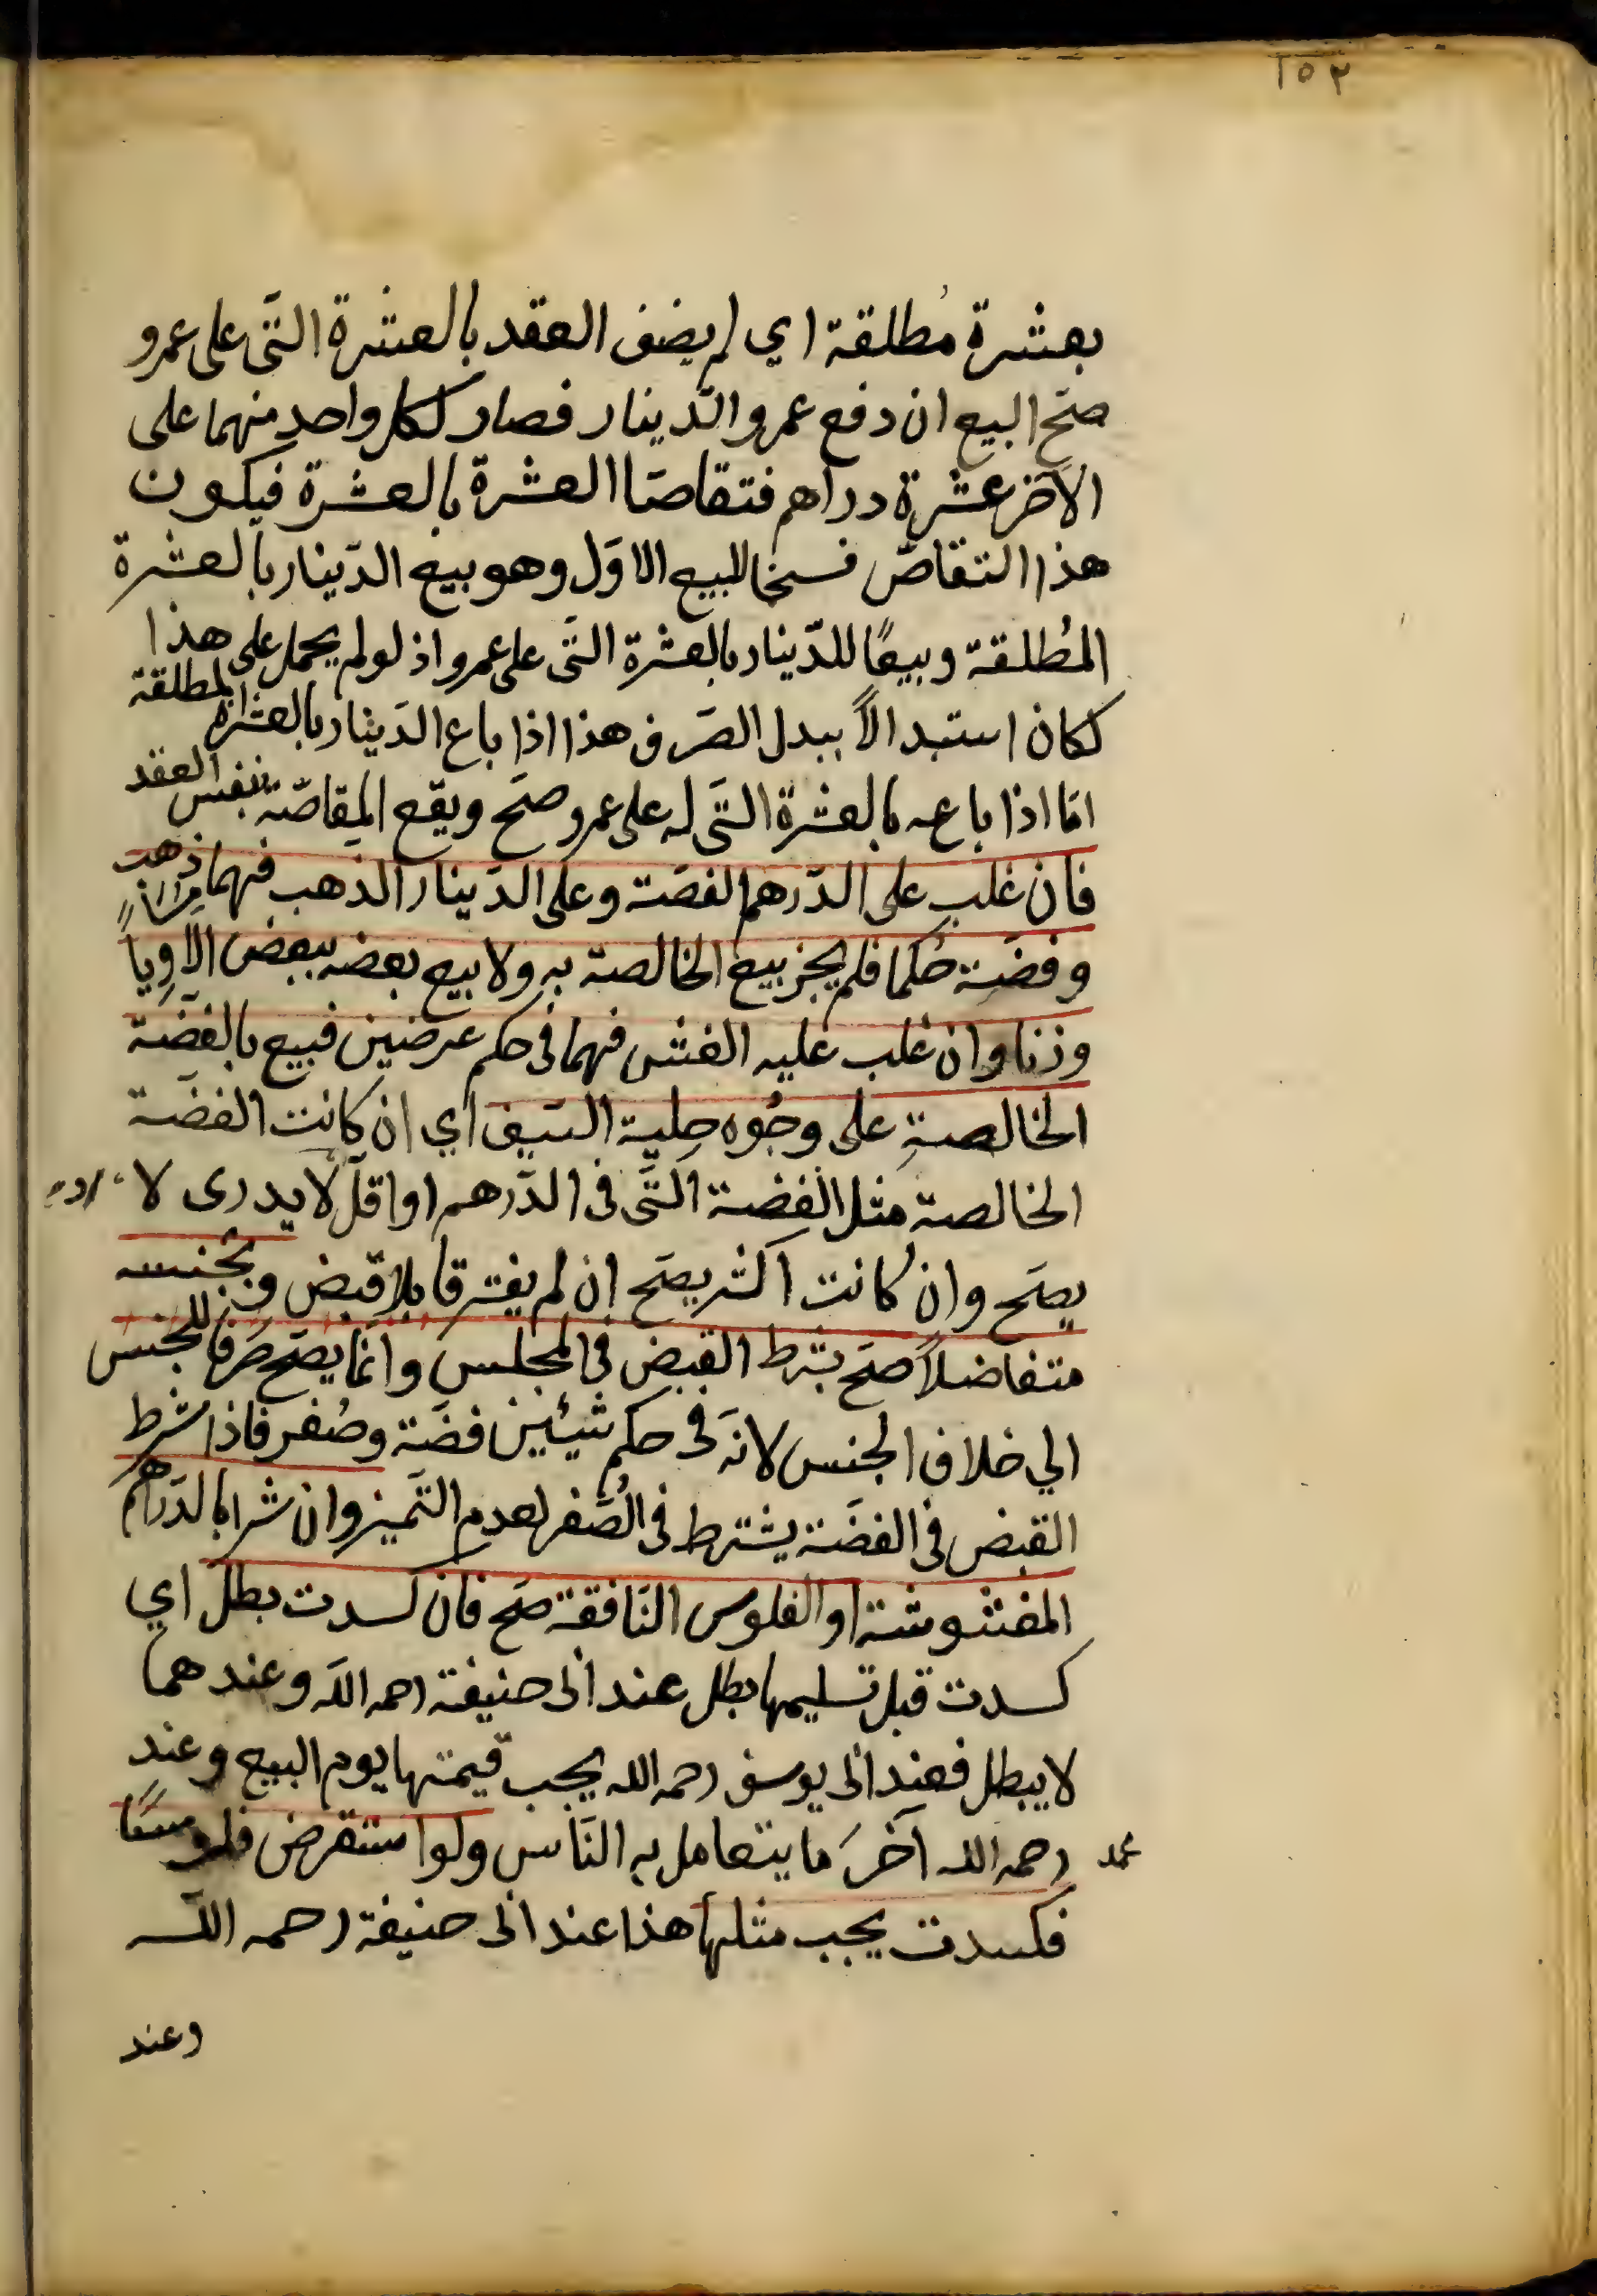 ١٥٢
بعشرة مُطلقة اي لم يضف العقد بالعشرة التَى على عمرو
صحَ البيع ان دفع عمرو الدّينار فصار لكل واحدٍ منهما على
الآخر عشرة دراهم فتقاصّا العشرة بالعشرة فيكون
هذا التقاصّ فسخا للبيع الاوَل وهو بيع الدّينار بالعشرة
المُطلقة وبيعًا للدّينار بالعشرة التَى على عمرو اذ لو لم يحمل على هذا
لكان استبدالاً ببدل الصَرف هذا اذا باع الدَينار بالعشرة المطلقة
امّا اذا باعه بالعشرة التَى له على عمرو صحَ ويقع المقاصّة بنفس العقد
فان غلب على الدَرهم الفضَة وعلى الدَينار الذَهب فهما ذهب
وفضَة حُكما فلم يجز بيع الخالصة به ولا بيع بعضه ببعض الا متساوياً
وزنا وان غلب عليه الغش فهما فى حكم عرضين فبيع بالفضَة
الخالصةِ على وجُوه حِلية السَيف اي ان كانت الفضَة
الخالصة مثل الفِضة التَى فى الدَرهم او اقلّ او لا يدرى لا
يصَح وان كانت اكثر يصَح ان لم يفترقا بلا قبض وبجنسه
متفاضلاً صحَ بشرط القبض فى المجلس وانّما يصَح صَرفًا للجنس
الي خلاف الجنس لانَه فى حكم شيئين فضَة وصُفر فاذا شرط
القبض فى الفضَة يشترط فى الصُفر لعدم التَميز وان شرا بالدَراهم
المغشوشة او الفلوس النَافقة صَح فان كسدت بطل اي
كسدت قبل تسليمها بطل عند ابى حنيفة رحمه اللّه وعندهما
لا يبطل فعند ابى يوسف رحمه الله يجب قيمتها يوم البيع وعند
محمد رحمه الله آخرَ ما يتعامل به النَاس ولو استقرض فلوسًا
فكسدت يجب مثلها هذا عند ابى حنيفة رحمه اللّه
وعند